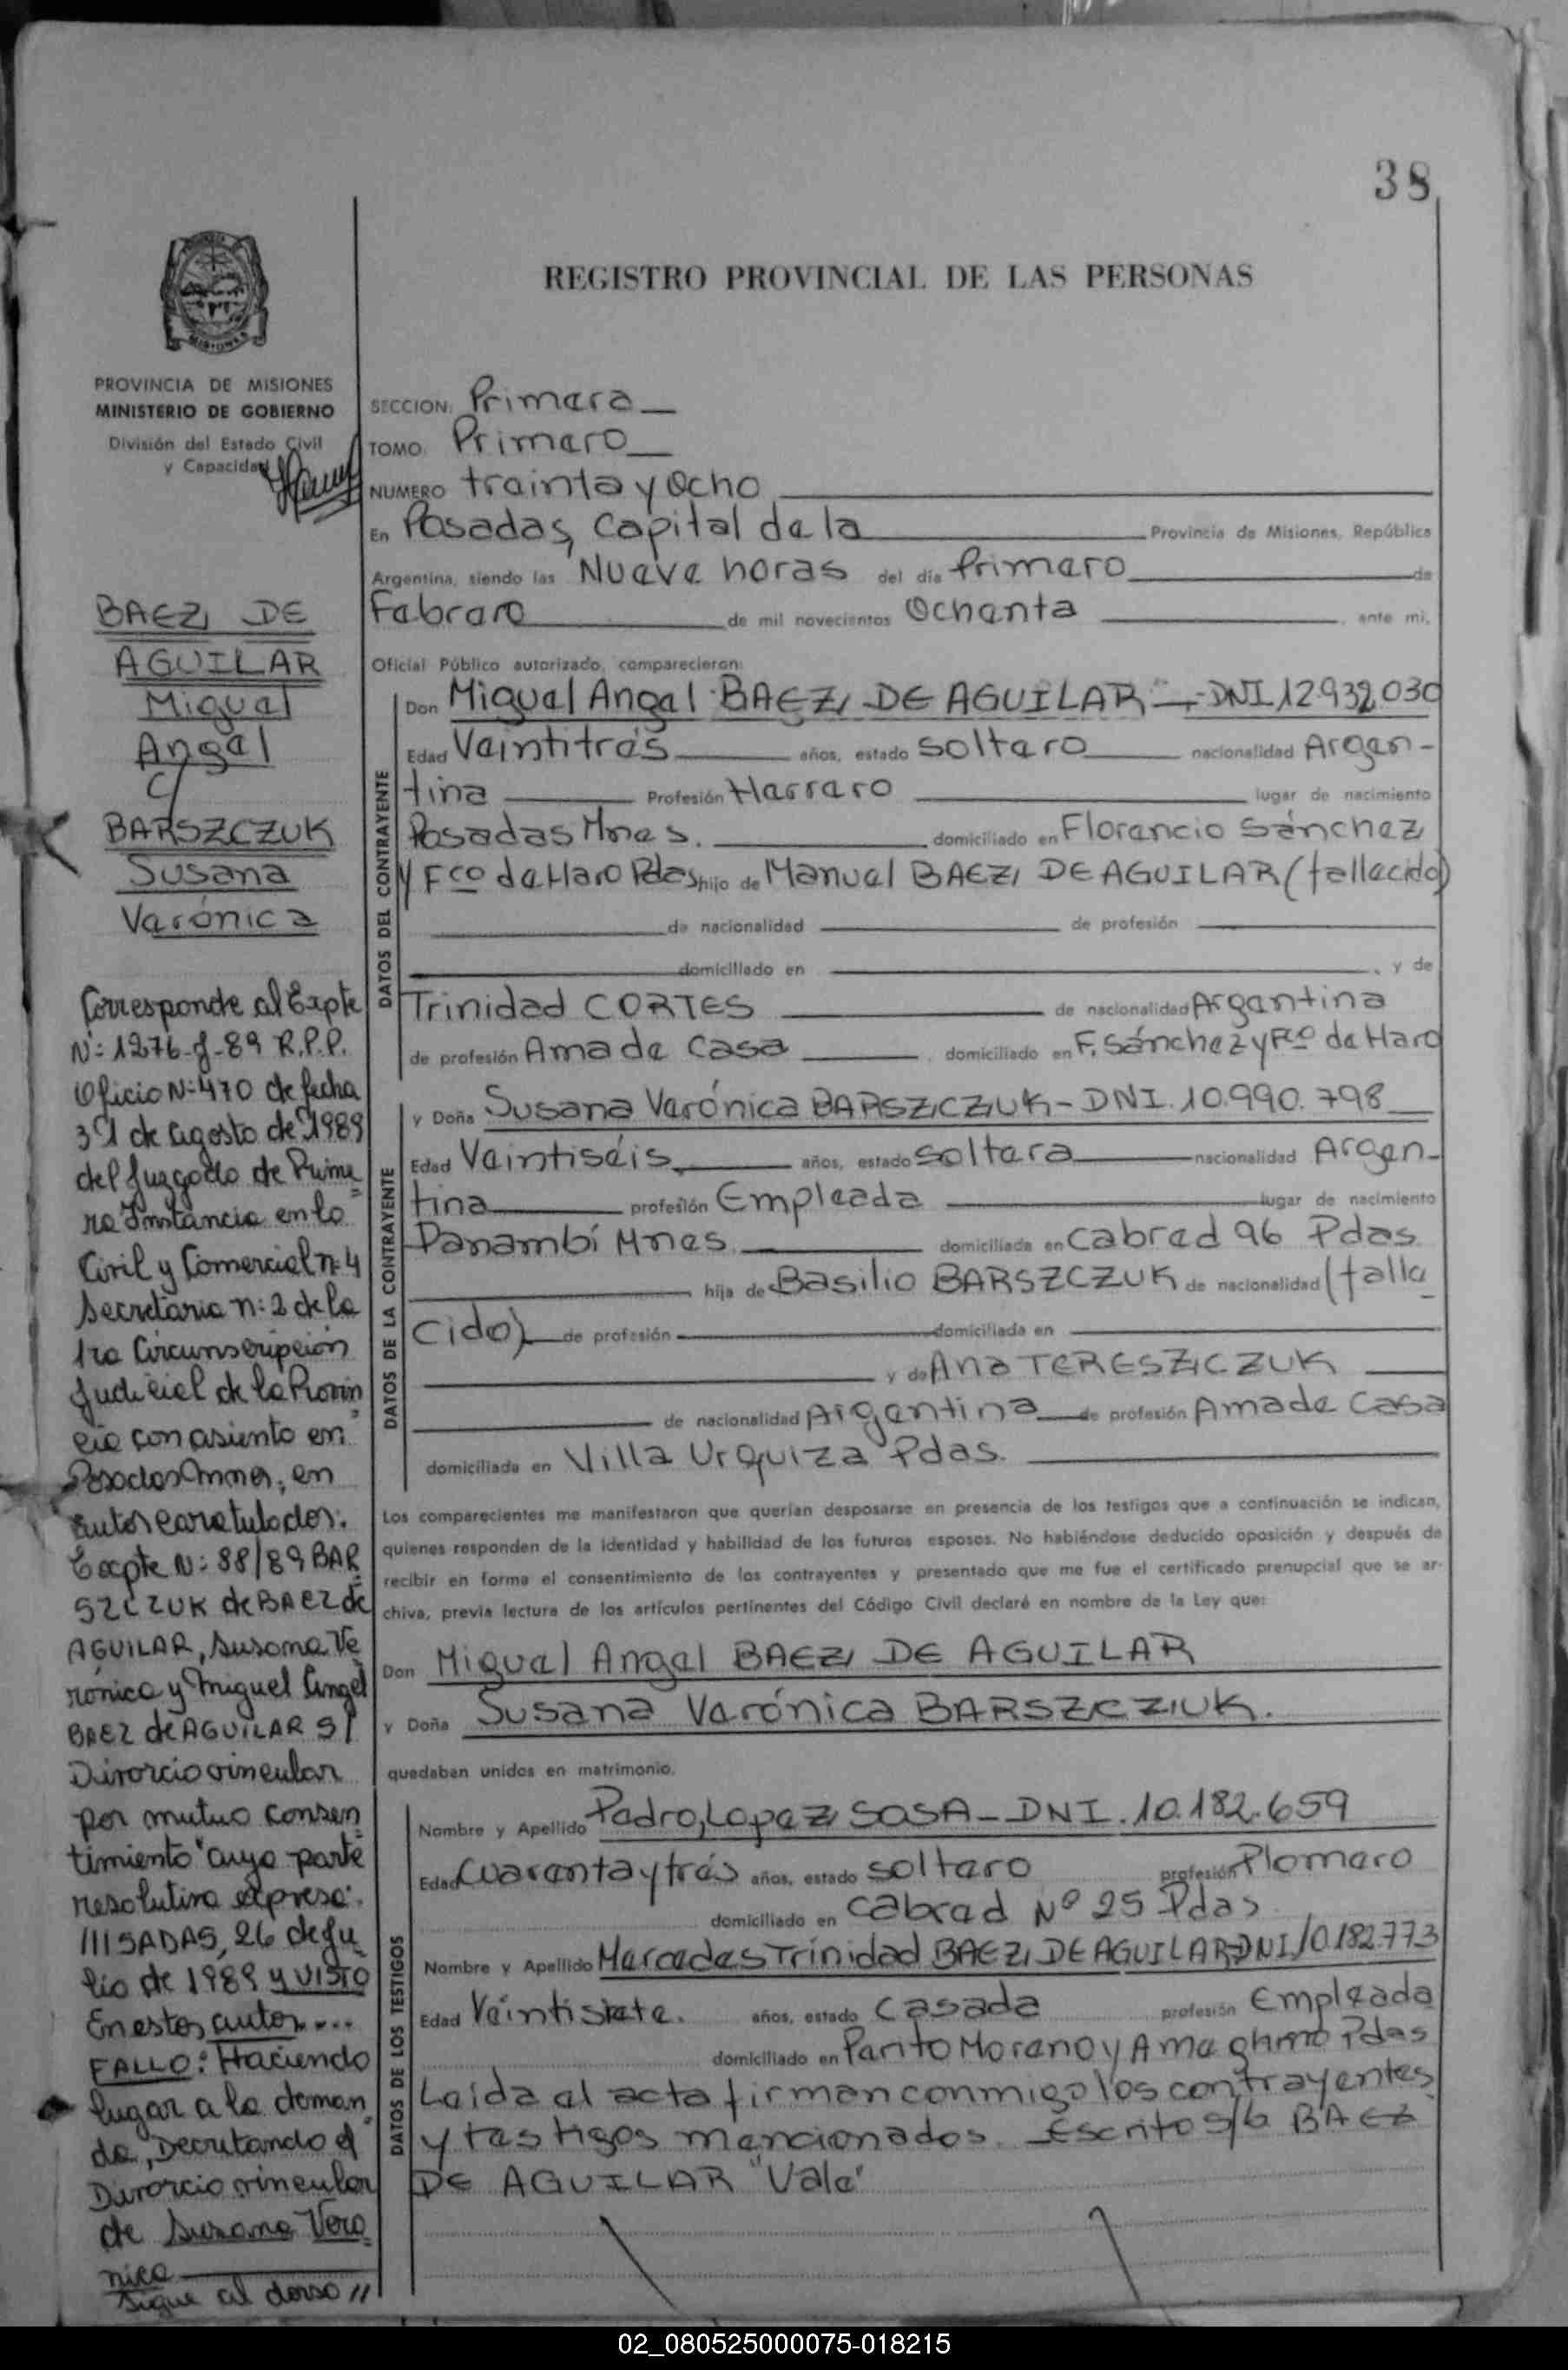 38
REGISTRO PROVINCIAL DE LAS PERSONAS
MISIONES
PROVINCIA DE MISIONES
MINISTERIO DE GOBIERNO
División del Estado Civil
y Capacidad
BAEZ DE
AGUILAR
Miguel
Angel
c/
BARSZCZUK
Susana
Verónica
Corresponde al Expte
Nº: 1276-J-89 R.P.P.
Oficio Nº: 470 de fecha
31 de agosto de 1989
del Juzgado de Prime
ra Instancia en lo
Civil y Comercial nº 4
Secretaria nº: 2 de la
1ra Circunscripción
Judicial de la Provin
cia con asiento en
Posadas Mnes, en
autos caratulados:
Expte Nº: 88/89 BAR
SZCZUK de BAEZ de
AGUILAR, Susana Ve
rónica y Miguel Angel
BAEZ de AGUILAR S/
Divorcio vincular
por mutuo consen
timiento" cuya parte
resolutiva expresa:
///SADAS, 26 de Ju
lio de 1989 y VISTO
En estos autos...
FALLO: Haciendo
lugar a la deman
da, Decretando el
Divorcio vincular
de Susana Vero
nica
Sigue al dorso //
SECCION: Primera
TOMO: Primero
NUMERO treinta y ocho
En Posadas, Capital de la Provincia de Misiones, República
Argentina, siendo las Nueve horas del día Primero de
Febrero de mil novecientos Ochenta, ante mi,
Oficial Público autorizado, comparecieron:
DATOS DEL CONTRAYENTE
Don Miguel Angel BAEZ DE AGUILAR - DNI 12.932.030
Edad Veintitrés años, estado soltero nacionalidad Argen-
tina Profesión Herrero lugar de nacimiento
Posadas Mnes. domiciliado en Florencio Sánchez
y Fco de Haro Pdas hijo de Manuel BAEZ DE AGUILAR (fallecido)
de nacionalidad de profesión
domiciliado en , y de
Trinidad CORTES de nacionalidad Argentina
de profesión Ama de Casa, domiciliado en F. Sánchez y Fco de Haro
DATOS DE LA CONTRAYENTE
y Doña Susana Verónica BARSZCZUK - DNI. 10.990.798
Edad Veintiséis, años, estado soltera nacionalidad Argen-
tina profesión Empleada lugar de nacimiento
Panambí Mnes. domiciliada en Cabred 96 Pdas
hija de Basilio BARSZCZUK de nacionalidad (falle
cido) de profesión domiciliada en
y de Ana TERESZCZUK
de nacionalidad Argentina de profesión Ama de Casa
domiciliada en Villa Urquiza Pdas.
Los comparecientes me manifestaron que querían desposarse en presencia de los testigos que a continuación se indican,
quienes responden de la identidad y habilidad de los futuros esposos. No habiéndose deducido oposición y después de
recibir en forma el consentimiento de los contrayentes y presentado que me fue el certificado prenupcial que se ar-
chiva, previa lectura de los artículos pertinentes del Código Civil declaré en nombre de la Ley que:
Don Miguel Angel BAEZ DE AGUILAR
y Doña Susana Verónica BARSZCZUK.
quedaban unidos en matrimonio.
DATOS DE LOS TESTIGOS
Nombre y Apellido Pedro, Lopez SOSA - DNI. 10.182.659
Edad Cuarenta y trés años, estado soltero profesión Plomero
domiciliado en Cabred Nº 25 Pdas
Nombre y Apellido Mercedes Trinidad BAEZ DE AGUILAR-DNI 10.182.773
Edad Veintisiete. años, estado Casada profesión Empleada
domiciliado en Perito Moreno y Pdas
Leida el acta firman conmigo los contrayentes
y testigos mencionados. Escrito s/b BAEZ
DE AGUILAR "Vale"
02_080525000075-018215